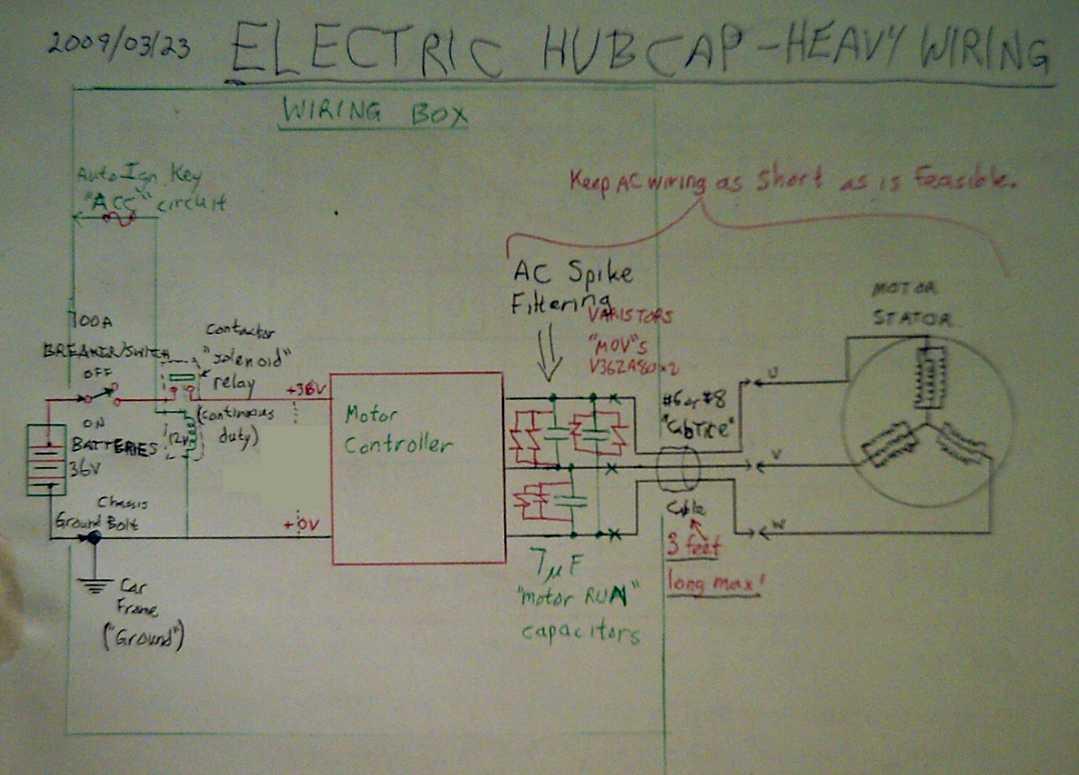 2009/03/23 ELECTRIC HUBCAP-HEAVY WIRING
WIRING BOX
Auto Ign Key
"ACC" circuit
Keep AC wiring as short as is feasible.
AC Spike
Filtering
VARISTORS
"MOV"S
MOTOR
STATOR
100A
BREAKER/SWITCH
OFF
ON
Contactor
"solenoid"
relay
(continuous
duty)
12V
+36V
Motor
Controller
#6 or #8
"CabTire"
Cable
3 feet
long max!
U
V
W
BATTERIES
36V
Chassis
Ground Bolt
+0V
Car
Frame
("Ground")
7µF
"motor RUN"
capacitors